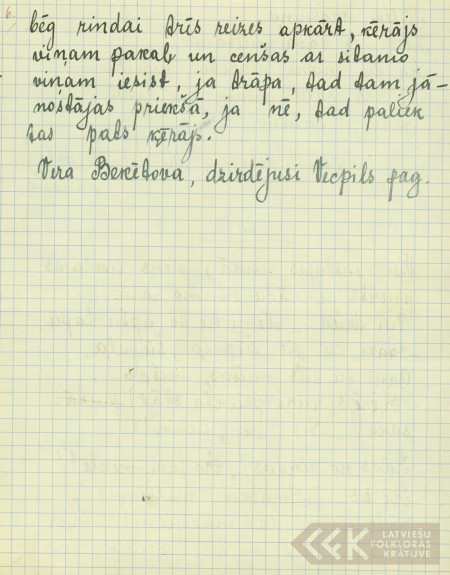 6
bēg rindai trīs reizes apkārt, ķērājs
viņam pakaļ un cenšas ar sitamo
viņam iesist, ja trāpa, tad tam jā-
nostājas priekšā, ja nē, tad paliek
tas pats ķērājs.
Vera Bekētova, dzirdējusi Vecpils pag.
LATVIEŠU
FOLKLORAS
KRĀTUVE